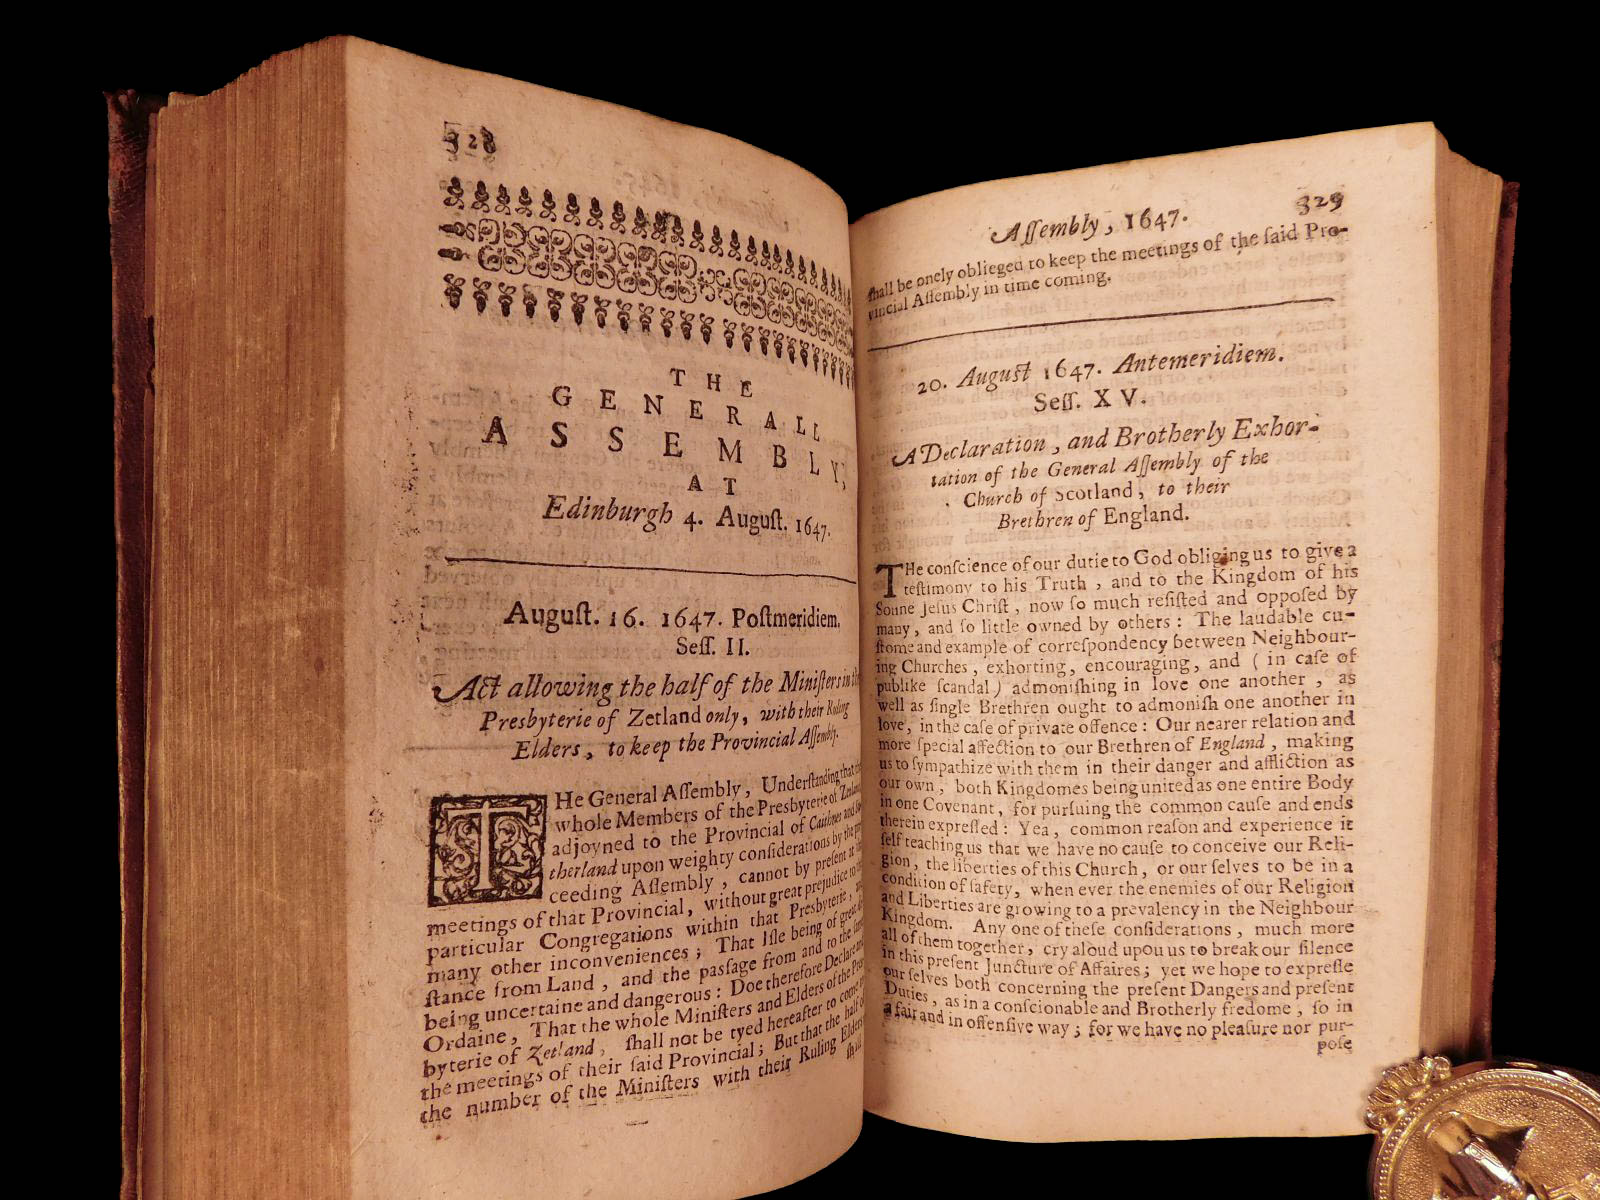 328
THE
GENERALL
ASSEMBLY,
AT
Edinburgh 4. Auguſt. 1647.
Auguſt. 16. 1647. Poſtmeridiem.
Seſſ. II.
Act allowing the half of the Miniſters in the
Presbyterie of Zetland only, with their Ruling
Elders, to keep the Provincial Aſſembly.
THe General Aſſembly, Underſtanding that
whole Members of the Presbyterie of Zetland
adjoyned to the Provincial of Caithnes and
therland upon weighty conſiderations by the
ceeding Aſſembly, cannot by preſent at
meetings of that Provincial, without great prejudice to
particular Congregations within that Presbyterie,
many other inconveniences; That Iſle being of great
ſtance from Land, and the paſſage from and to the
being uncertaine and dangerous: Doe therefore Declare
Ordaine, That the whole Miniſters and Elders of the
byterie of Zetland, ſhall not be tyed hereafter to come
the meetings of their ſaid Provincial; But that the half of
the number of the Miniſters with their Ruling Elders
ſhall
Aſſembly, 1647. 329
ſhall be onely oblieged to keep the meetings of the ſaid Pro-
vincial Aſſembly in time coming.
20. Auguſt 1647. Antemeridiem.
Seſſ. XV.
A Declaration, and Brotherly Exhor-
tation of the General Aſſembly of the
Church of Scotland, to their
Brethren of England.
THe conſcience of our dutie to God obliging us to give a
teſtimony to his Truth, and to the Kingdom of his
Sonne Jeſus Chriſt, now ſo much reſiſted and oppoſed by
many, and ſo little owned by others: The laudable cu-
ſtome and example of correſpondency between Neighbour-
ing Churches, exhorting, encouraging, and (in caſe of
publike ſcandal) admoniſhing in love one another, as
well as ſingle Brethren ought to admoniſh one another in
love, in the caſe of private offence: Our nearer relation and
more ſpecial affection to our Brethren of England, making
us to ſympathize with them in their danger and affliction as
our own, both Kingdomes being united as one entire Body
in one Covenant, for purſuing the common cauſe and ends
therein expreſſed: Yea, common reaſon and experience it
ſelf teaching us that we have no cauſe to conceive our Reli-
gion, the liberties of this Church, or our ſelves to be in a
condition of ſafety, when ever the enemies of our Religion
and Liberties are growing to a prevalency in the Neighbour
Kingdom. Any one of theſe conſiderations, much more
all of them together, cry aloud upon us to break our ſilence
in this preſent Juncture of Affaires; yet we hope to expreſſe
our ſelves both concerning the preſent Dangers and preſent
Duties, as in a conſcionable and Brotherly fredome, ſo in
a fair and in offenſive way; for we have no pleaſure nor pur-
poſe